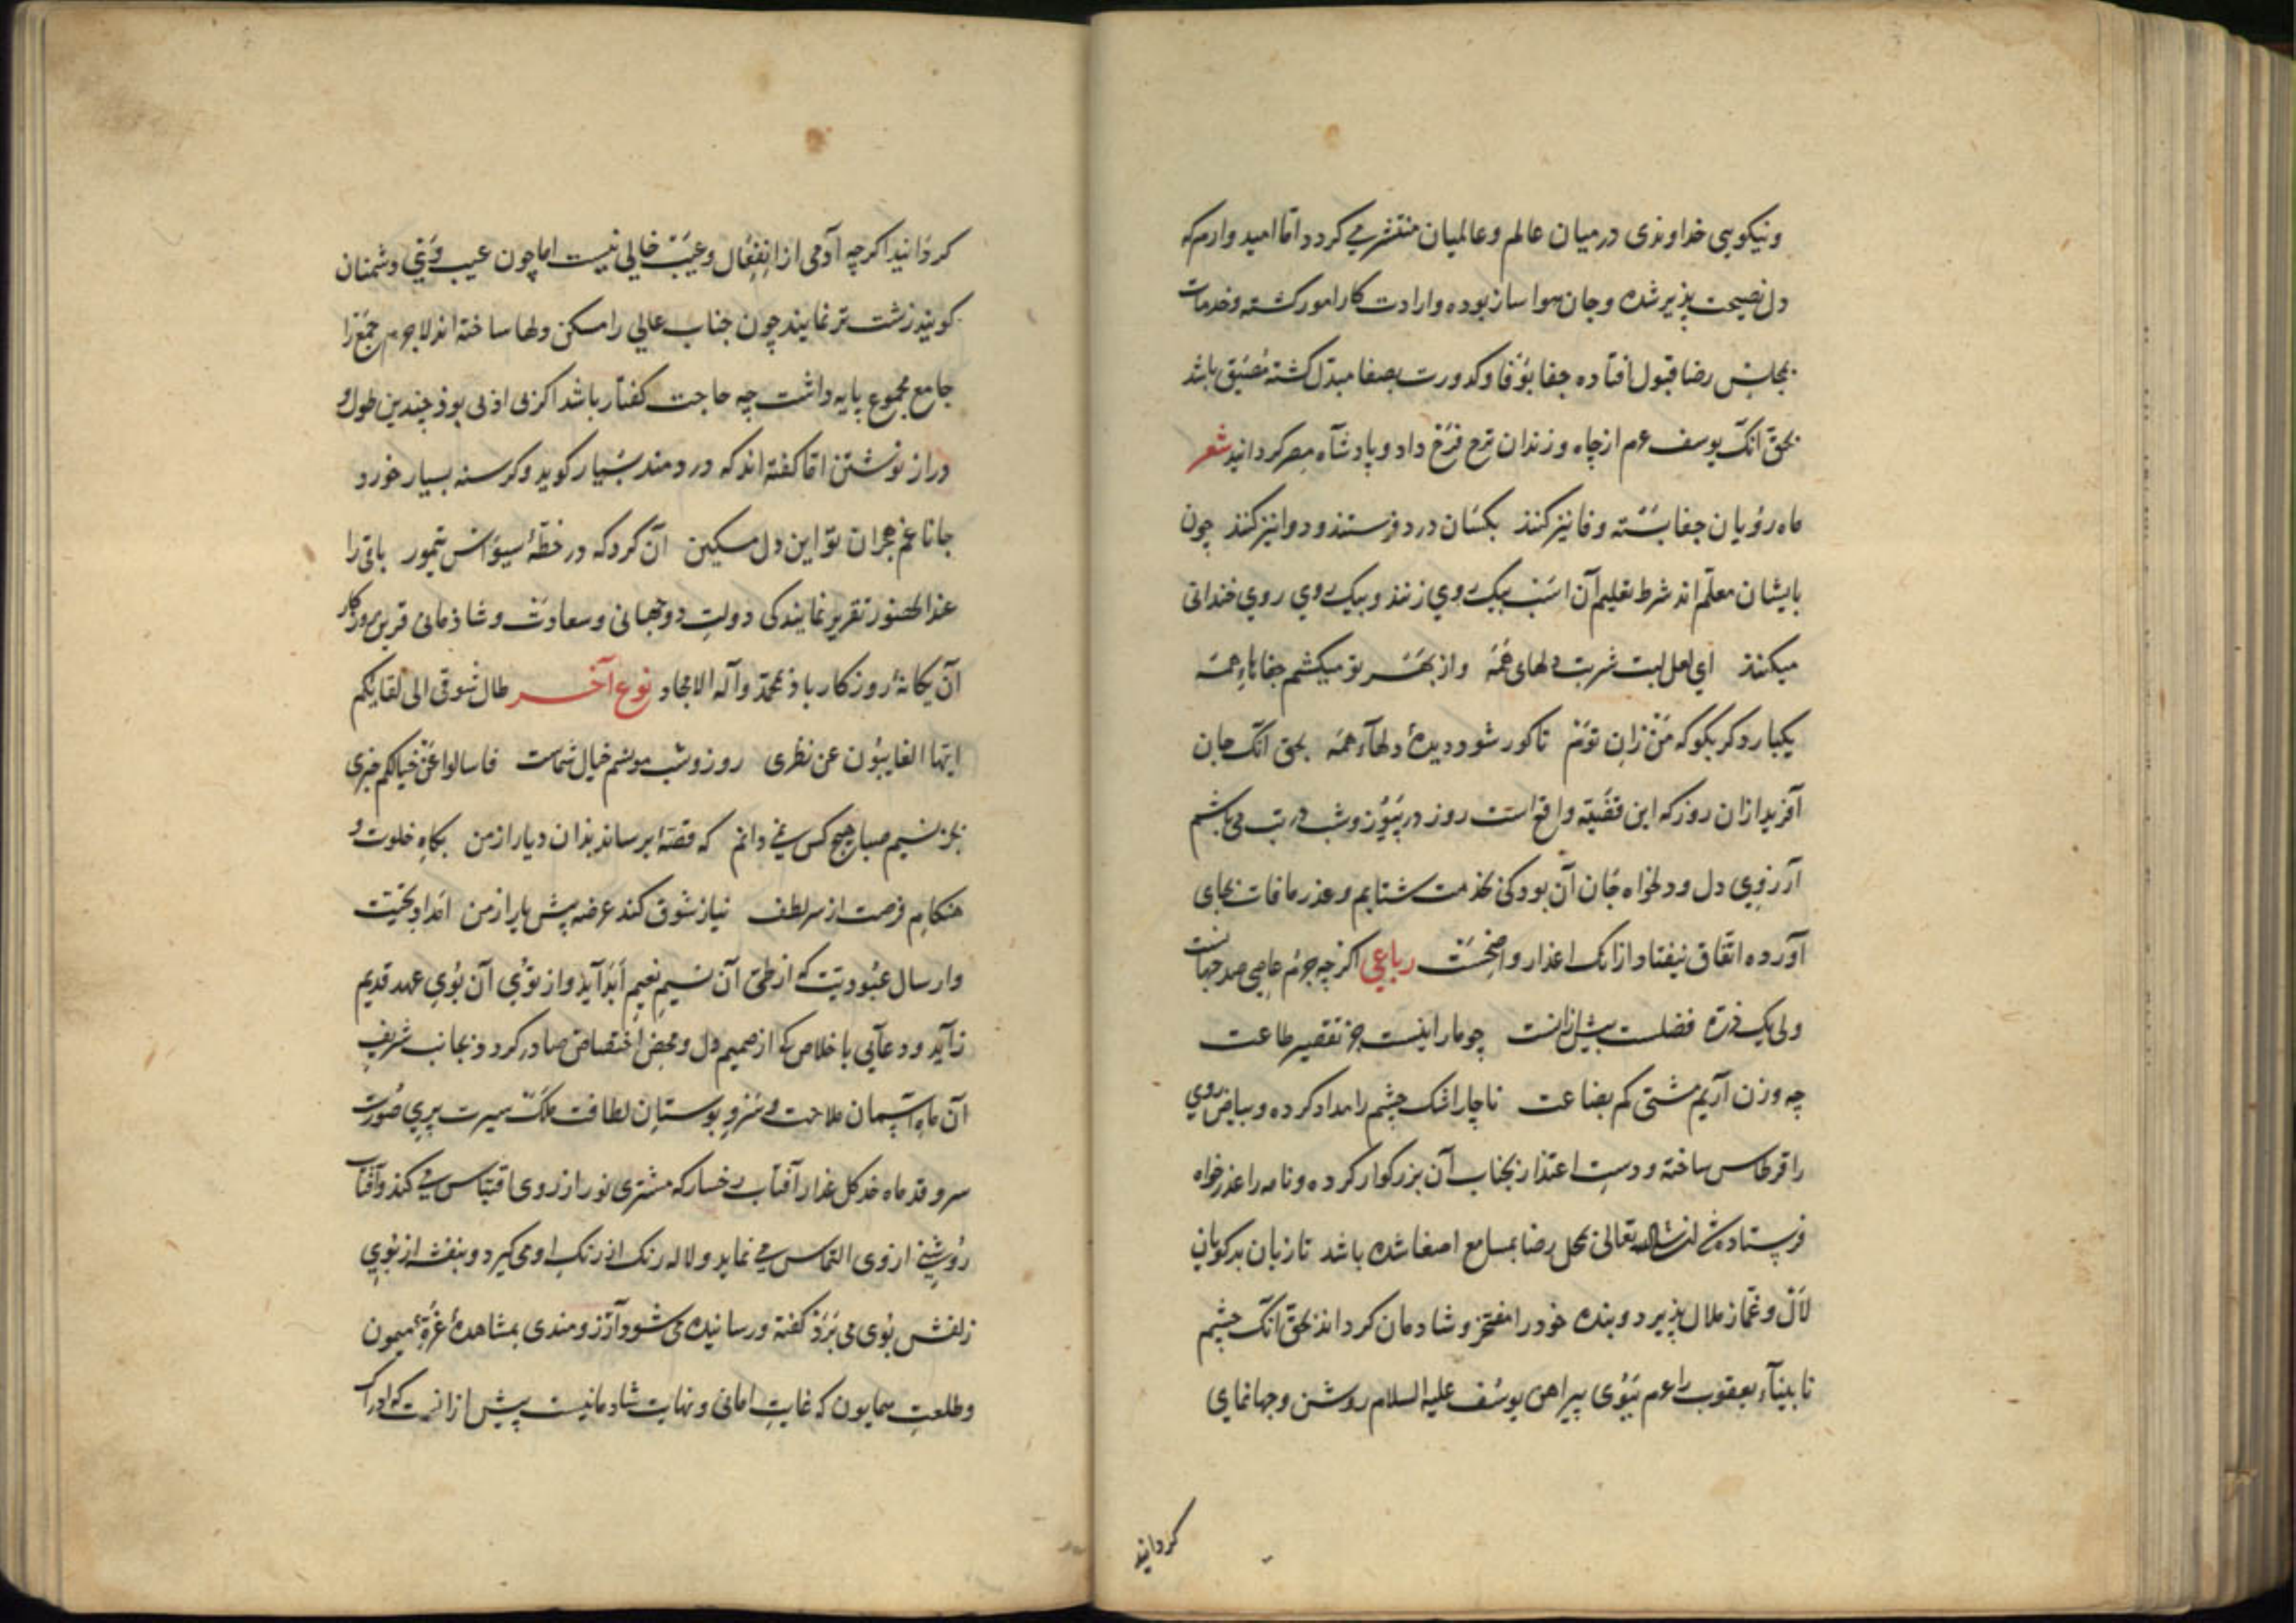 ونیکویی خداوندی درمیان عالم وعالمیان منتشر می کردد اما امید وارم که
دل نصیحت پذیر شده وجان هوا ساز بوده وارادت کار امور کشته وخدمات
بمجلس رضا قبول افتاده جفا بوفا وکدورت بصفا مبدل کشته باشد
بحق آنک یوسف عم از چاه وزندان ترح فرح داد وپادشاه مصر کردانید شعر
ماه رویان جفا وفا نیز کنند بکسان درد فرستند و دوا نیز کنند چون
بایشان معلم اند شرط تعلیم آن است بیک روی زنند وبیک روی روی خندانی
میکنند ای لعل لبت شربت دلهای همه واز بهر تو میکشم جفاهاء همه
یکبار دکر بکو که من زان توئم تا کور شود دیدهٔ دلهاء همه بحق آنک جان
آفرید ازان روز که این قضیه واقع است روز در وشب در تب می باشم
آرزوی دل ودلخواه جان آن بود کی بخدمت شتابم وعذر مافات بجای
آورده اتفاق نیفتاد ازانک اعذار واضحست رباعی اکرچه جرم عاصی صد جهانست
ولی یک ذره فضلت بیش ازانست چو ما را نیست جز تقصیر طاعت
چه وزن آریم مشتی کم بضاعت ناچار اشک چشم را مداد کرده وبیاض روی
را قرطاس ساخته ودست اعتذار بجناب آن بزرکوار کرده ونامه را عذرخواه
فرستاده شد انشاالله تعالی بمحل رضا بمسامع اصغا شده باشد تا زبان بدکویان
لال وغماز ملال پذیرد وبنده خود را مفتخر وشادمان کرداند بحق آنک چشم
نابیناء یعقوب را عم ببوی پیراهن یوسف علیه السلام روشن وجهانمای
کردانید
کردانید اکرچه آدمی از انفعال وعیب خالی نیست اما چون عیب وی دشمنان
کویند زشت تر نمایند چون جناب عالی را مسکن دلها ساخته اند لاجرم جمع را
جامع مجموع پایه داشت چه حاجت کفتار باشد اکرنی اذنی بود چندین طول و
دراز نوشتن اما کفته اند که دردمند بسیار کوید وکرسنه بسیار خورد
جانا غم هجران تو این دل مسکین آن کرد که در خطهٔ سیواس تیمور باقی را
عند الحضور تقریر نمایند کی دولت دوجهانی وسعادت وشادمانی قرین روزکار
آن یکانهٔ روزکار باد بمحمد وآله الامجاد نوع آخر طال شوقی الی لقایکم
ایها الغایبون عن نظری روز وشب مونسم خیال شماست فاسالوا عن خیالکم خبری
بجز نسیم صبا هیچ کس نمی دانم که قصهٔ برساند بدان دیار از من بکاه خلوت و
هنکام فرصت از سر لطف نیاز شوق کند عرضه پیش یار از من امداد تحیت
وارسال عبودیت که از طی آن نسیم نعیم ابد آید واز توی آن بوی عهد قدیم
زاید ودعایی باخلاص که از صمیم دل ومحض اختصاص صادر کردد بجانب شریف
آن ماه آسمان ملاحت وسرو بوستان لطافت ملک سیرت پری صورت
سرو قد ماه خد کل عذار آفتاب رخسار که مشتری نور از روی اقتباس می کند وآفتاب
روشنی از وی التماس می نماید ولاله رنک از رنک او می کیرد وبنفشه از بوی
زلفش بوی می برد کفته ورسانیده می شود وآرزومندی بمشاهدهٔ غرهٔ میمون
وطلعت همایون که غایت امانی ونهایت شادمانیست پیش ازانست که ادراک